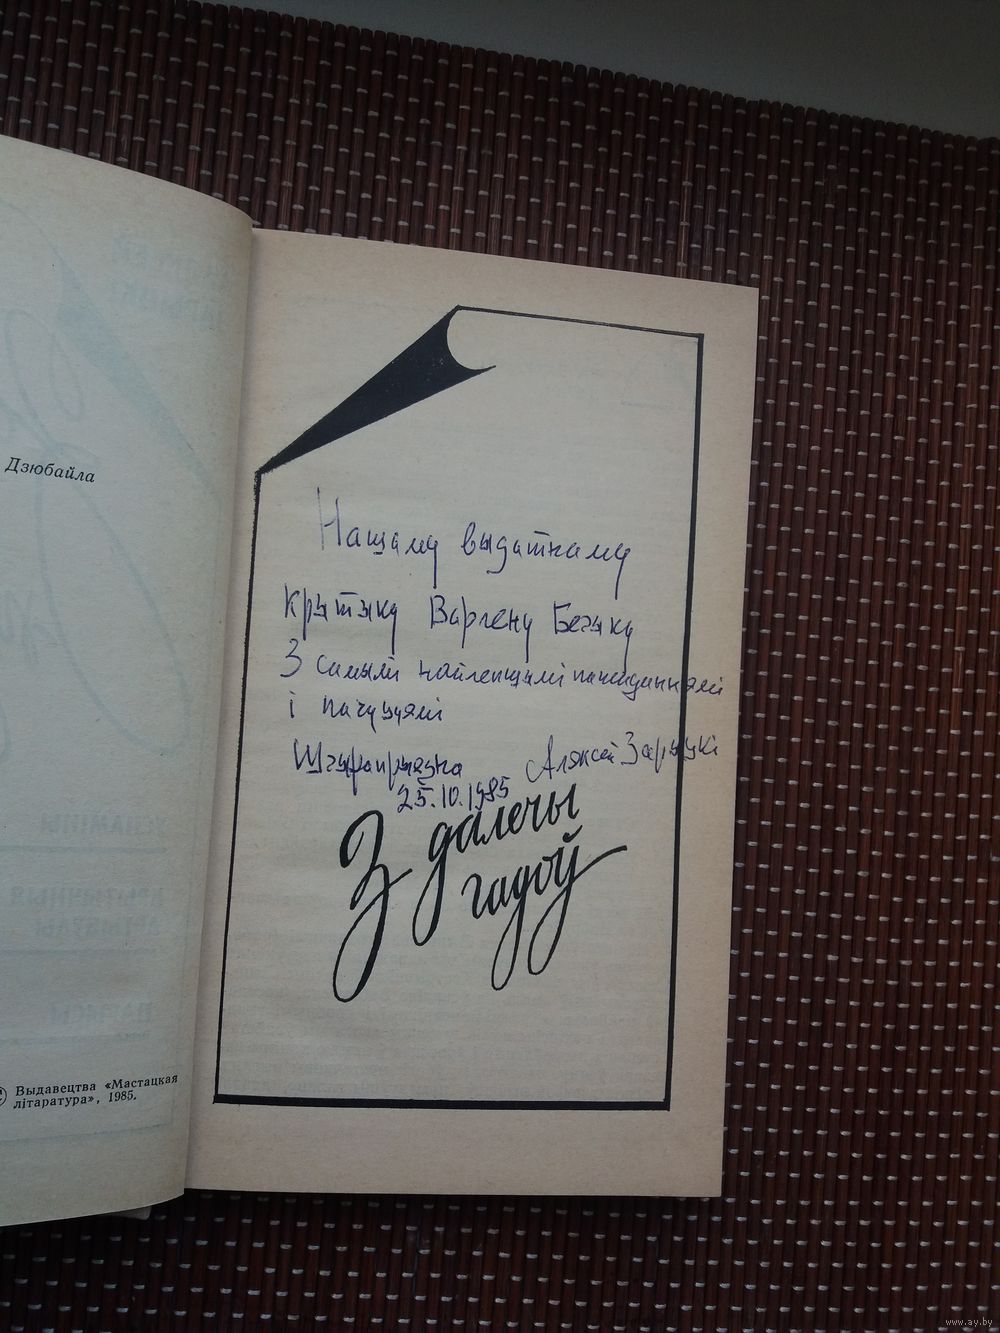 Дзюбайла
© Выдавецтва «Мастацкая
літаратура», 1985.
Нашаму выдатнаму
Крытыку Варлену Бечыку
З самымі найлепшымі пачуццямі
і
Шчыра
Аляксей Зарыцкі
25.10.1985
З далечы
гадоў
УСПАМІНЫ
КРЫТЫЧНЫЯ
АРТЫКУЛЫ
www.ay.by